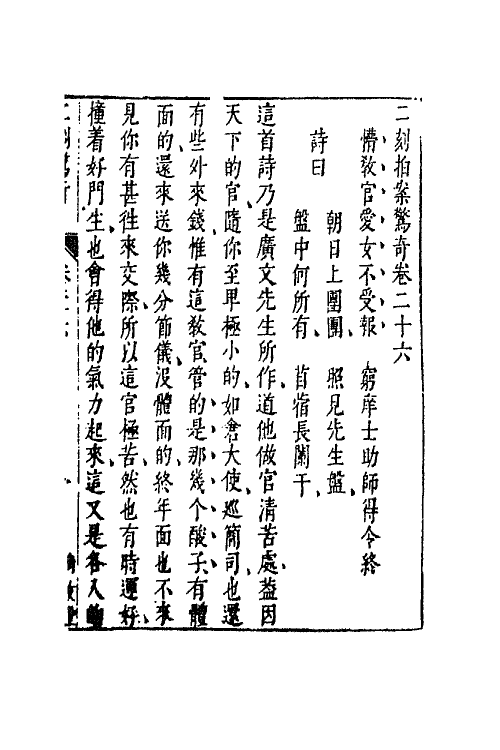 二刻拍案驚奇卷二十六
懵教官愛女不受報　窮庠士助師得令終
詩曰
朝日上團團、照見先生盤、
盤中何所有、苜蓿長闌干、
這首詩乃是廣文先生所作、道他做官清苦處、蓋因
天下的官、隨你至卑極小的、如倉大使、巡簡司、也還
有些外來錢、惟有這教官、管的是那幾个酸子、有體
面的、還來送你幾分節儀、沒體面的、終年面也不來
見你、有甚徃來交際、所以這官極苦、然也有時運好、
撞着好門生、也會得他的氣力起來、這又是各人的
二刻驚奇　卷二十六　一